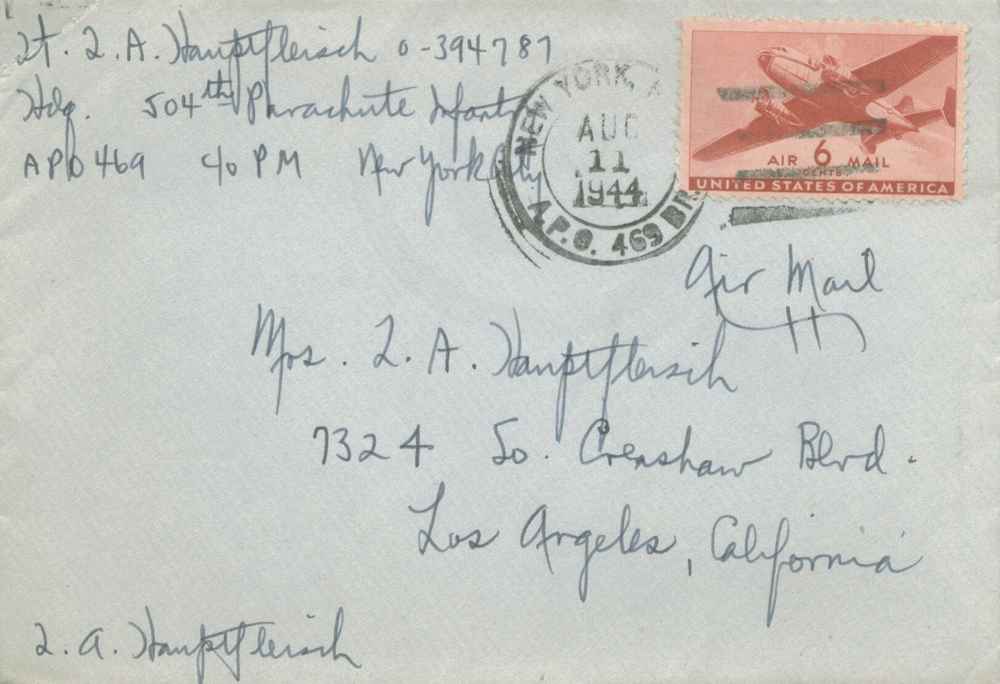 Lt. L. A. Hauptfleisch O-394787
Hdq. 504th Parachute Infantry
APO 469 c/o PM New York City
NEW YORK, N
AUG
11
1944
A.P.O. 469 BR.
AIR 6 MAIL
CENTS
UNITED STATES OF AMERICA
Air Mail
Mrs. L. A. Hauptfleisch
7324 So. Crenshaw Blvd.
Los Angeles, California
L. A. Hauptfleisch